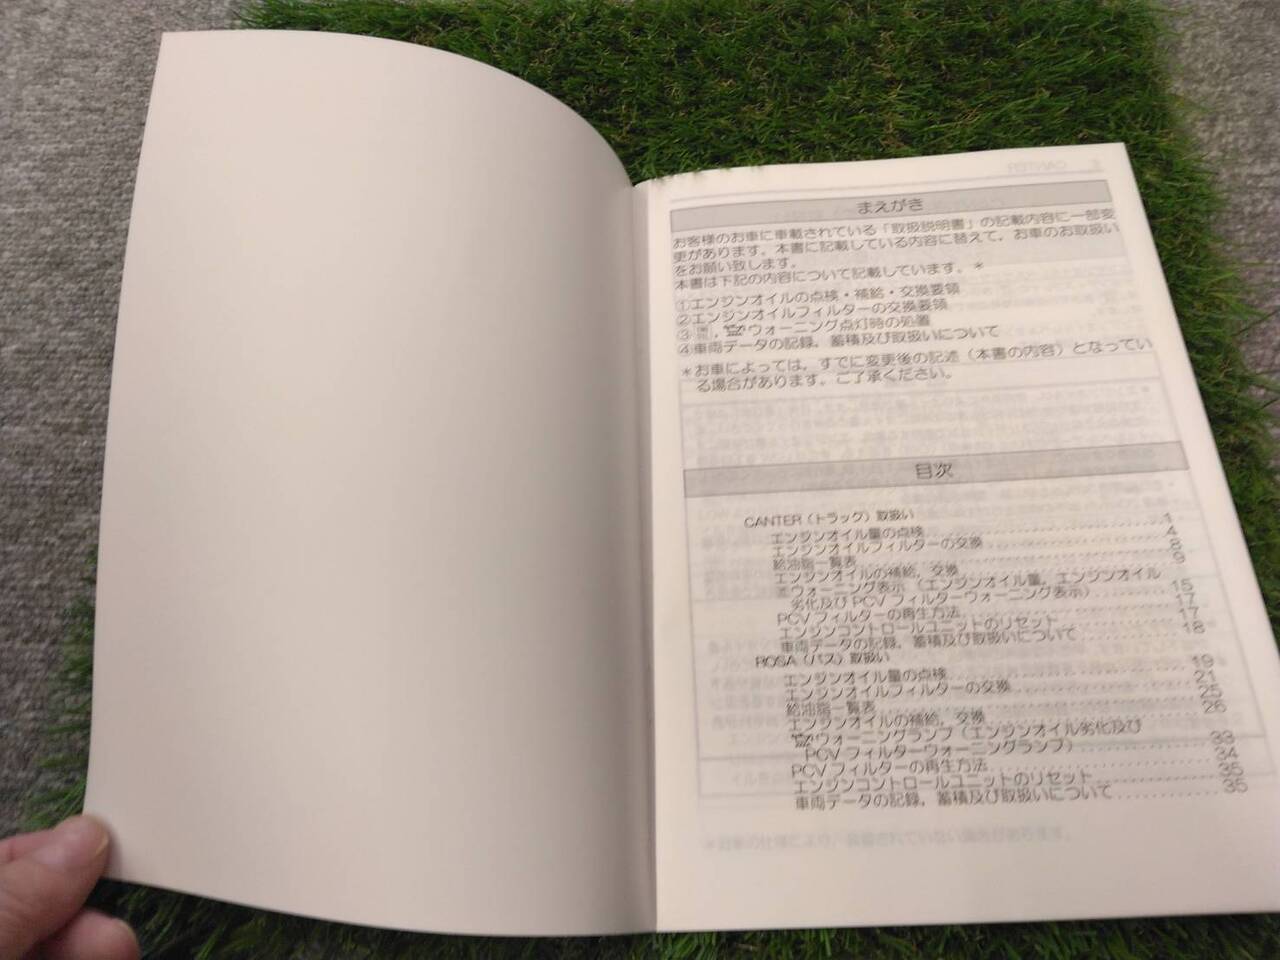 まえがき
お客様のお車に車載されている「取扱説明書」の記載内容に一部変
更があります。本書に記載している内容に替えて，お車のお取扱い
をお願い致します。
本書は下記の内容について記載しています。＊
①エンジンオイルの点検・補給・交換要領
②エンジンオイルフィルターの交換要領
③ ，ウォーニング点灯時の処置
④車両データの記録，蓄積及び取扱いについて
＊お車によっては，すでに変更後の記述（本書の内容）となってい
る場合があります。ご了承ください。
目次
CANTER（トラック）取扱い
エンジンオイル量の点検 1
エンジンオイルフィルターの交換 4
給油脂一覧表 8
エンジンオイルの補給，交換 9
ウォーニング表示（エンジンオイル量，エンジンオイル
劣化及び PCV フィルターウォーニング表示） 15
PCV フィルターの再生方法 17
エンジンコントロールユニットのリセット 17
車両データの記録，蓄積及び取扱いについて 18
ROSA（バス）取扱い
エンジンオイル量の点検 19
エンジンオイルフィルターの交換 21
給油脂一覧表 25
エンジンオイルの補給，交換 26
ウォーニングランプ（エンジンオイル劣化及び
PCV フィルターウォーニングランプ） 33
PCV フィルターの再生方法 34
エンジンコントロールユニットのリセット 35
車両データの記録，蓄積及び取扱いについて 35